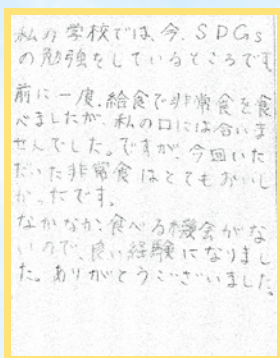 私の学校では、今、SDGs
の勉強をしているところです。
前に一度、給食で非常食を食
べましたが、私の口には合いま
せんでした。ですが、今回いた
だいた非常食はとてもおいし
かったです。
なかなか食べる機会がな
いので、良い経験になりまし
た。ありがとうございました。